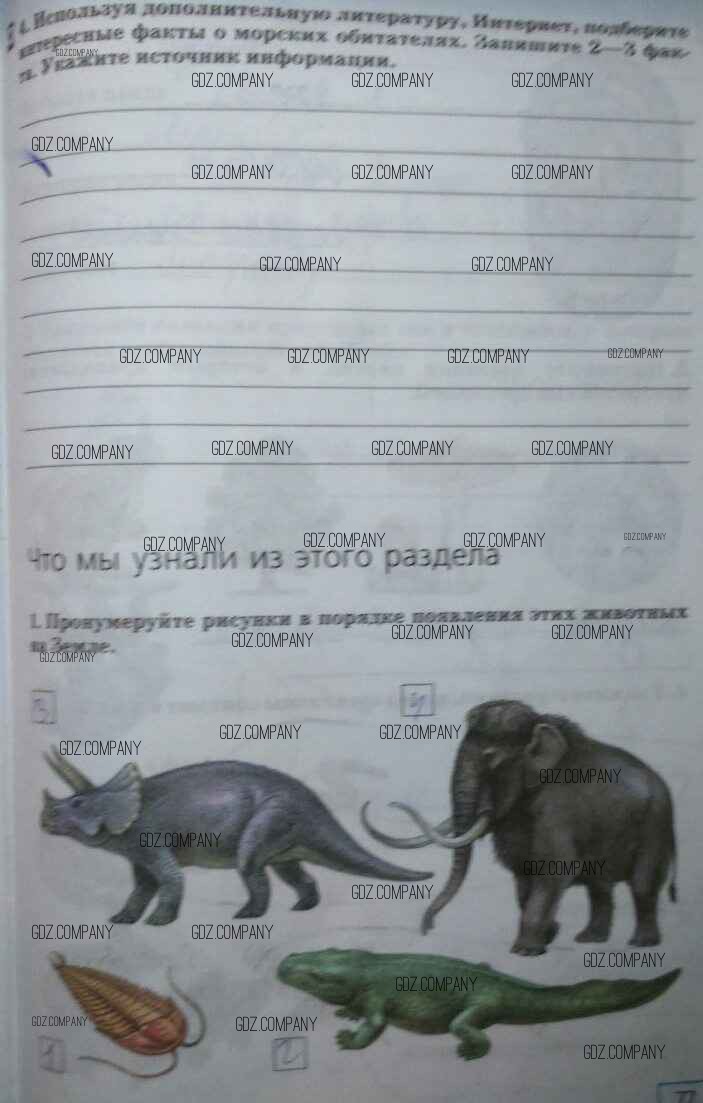 4. Используя дополнительную литературу, Интернет, подберите
интересные факты о морских обитателях. Запишите 2—3 фак-
та. Укажите источник информации.
GDZ.COMPANY
GDZ.COMPANY GDZ.COMPANY GDZ.COMPANY
GDZ.COMPANY
GDZ.COMPANY GDZ.COMPANY GDZ.COMPANY
GDZ.COMPANY GDZ.COMPANY GDZ.COMPANY
GDZ.COMPANY GDZ.COMPANY GDZ.COMPANY GDZ.COMPANY
GDZ.COMPANY GDZ.COMPANY GDZ.COMPANY GDZ.COMPANY
GDZ.COMPANY GDZ.COMPANY GDZ.COMPANY GDZ.COMPANY
Что мы узнали из этого раздела
1. Пронумеруйте рисунки в порядке появления этих животных
на Земле.
GDZ.COMPANY GDZ.COMPANY GDZ.COMPANY
GDZ.COMPANY
3 4
GDZ.COMPANY GDZ.COMPANY
GDZ.COMPANY GDZ.COMPANY
GDZ.COMPANY GDZ.COMPANY
GDZ.COMPANY
GDZ.COMPANY GDZ.COMPANY
GDZ.COMPANY
GDZ.COMPANY
GDZ.COMPANY GDZ.COMPANY
1 2
GDZ.COMPANY
77